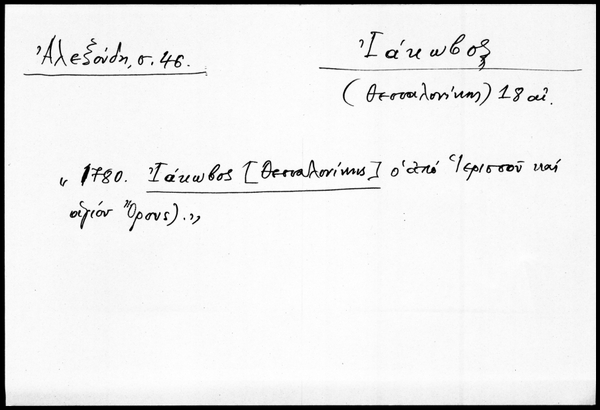 Ἀλεξούδη, σ. 46.
Ἰάκωβος
(Θεσσαλονίκης) 18 αἰ.
" 1780. Ἰάκωβος [Θεσσαλονίκης] ὁ ἀπό Ἱερισσοῦ καί
ἁγίου Ὄρους)."